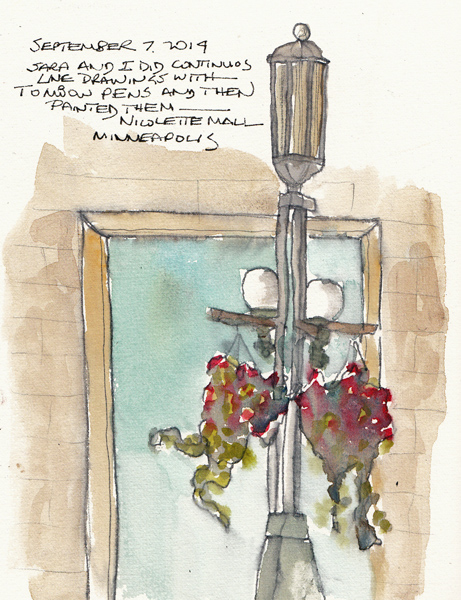 SEPTEMBER 7, 2014
SARA AND I DID CONTINUOS
LINE DRAWINGS WITH
TOMBOW PENS AND THEN
PAINTED THEM
NICOLETTE MALL
MINNEAPOLIS